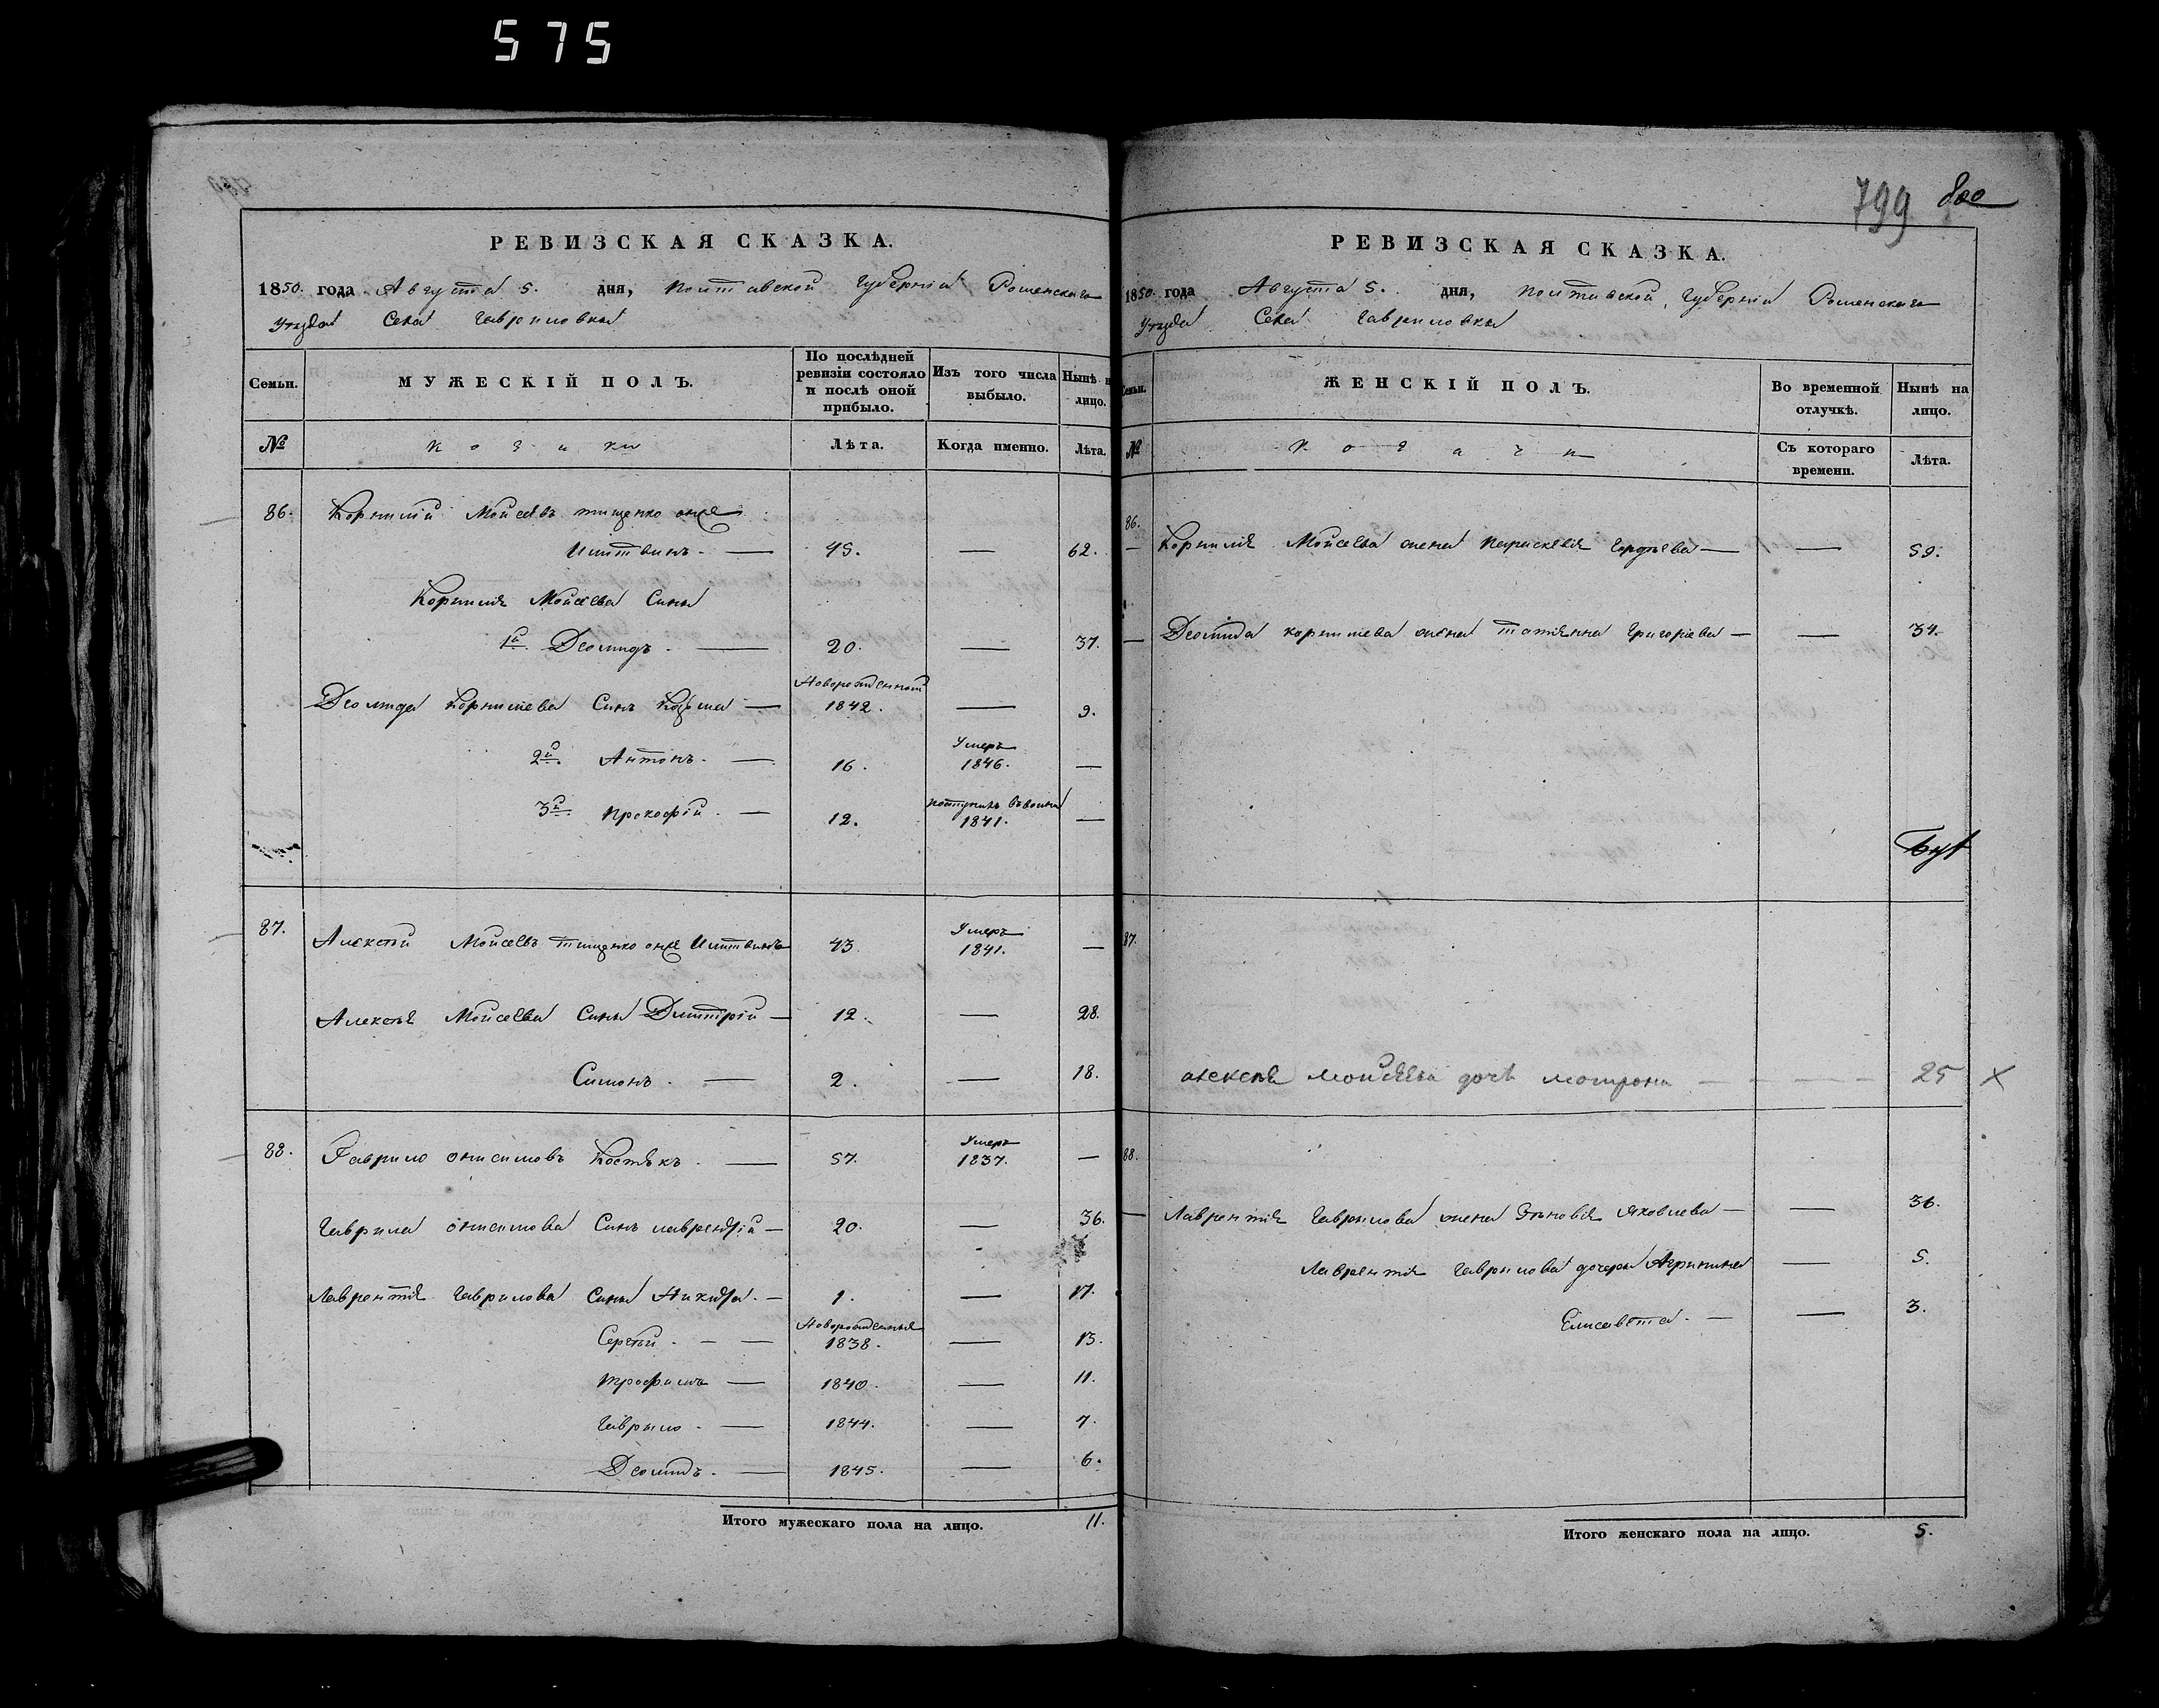 575
РЕВИЗСКАЯ СКАЗКА.
1850. года Августа 5. дня, Полтавской Губерніи Роменскаго
Уѣзда Села Гавриловки
Семьи. МУЖЕСКІЙ ПОЛЪ. По послѣдней ревизіи состояло и послѣ оной прибыло. Изъ того числа выбыло. Нынѣ н лицо.
№ козаки Лѣта. Когда именно. Лѣта.
86. Корнилій Моисеевъ Тищенко онже
Литвинъ. — 45. — 62.
Корнилія Моисеева Сины
1й. Деомидъ. — 20. — 37.
Новорожденный
Деомида Корнилева Синъ Козьма — 1842. — 9.
2й. Антонъ. — 16. Умеръ 1846. —
3й. Прокофій. — 12. 1841. —
87. Алексѣй Моисеевъ Тищенко онже Литвинъ 43 Умеръ 1841. —
Алексѣя Моисеева Сины Дмитрій — 12. — 28.
Симонъ. — 2. — 18.
88. Гаврило Онисимовъ Костякъ. — 57. Умеръ 1837. —
Гаврила Онисимова Синъ Лаврентій — 20. — 36.
Лаврентія Гаврилова Сины Никита. — 1. — 17.
Новорожденныя
Сергѣй. — — 1838. — 13.
Трофимъ — 1840. — 11.
Гаврило. — 1844. — 7.
Деомидъ. — 1845. — 6.
Итого мужескаго пола на лицо. 11.
799 800
РЕВИЗСКАЯ СКАЗКА.
1850 года Августа 5. дня, Полтавской Губерніи Роменскаго
Уѣзда Села Гавриловки
Семьи. ЖЕНСКІЙ ПОЛЪ. Во временной отлучкѣ. Нынѣ на лицо.
№ козачки Съ котораго времени. Лѣта.
86.
— Корнилія Моисеева жена Параскевія Гордѣева — — 59.
— Деомида Корнилева жена Татіянна Григоріева — — 34.
87.
Алексѣя Моисѣева дочь Мотрона — — — — 25 X
88.
— Лаврентія Гаврилова жена Зѣновія Яковлева — — 36.
Лаврентія Гаврилова дочери Агрипина — 5.
Елисавета. — — 3.
Итого женскаго пола на лицо. 5.